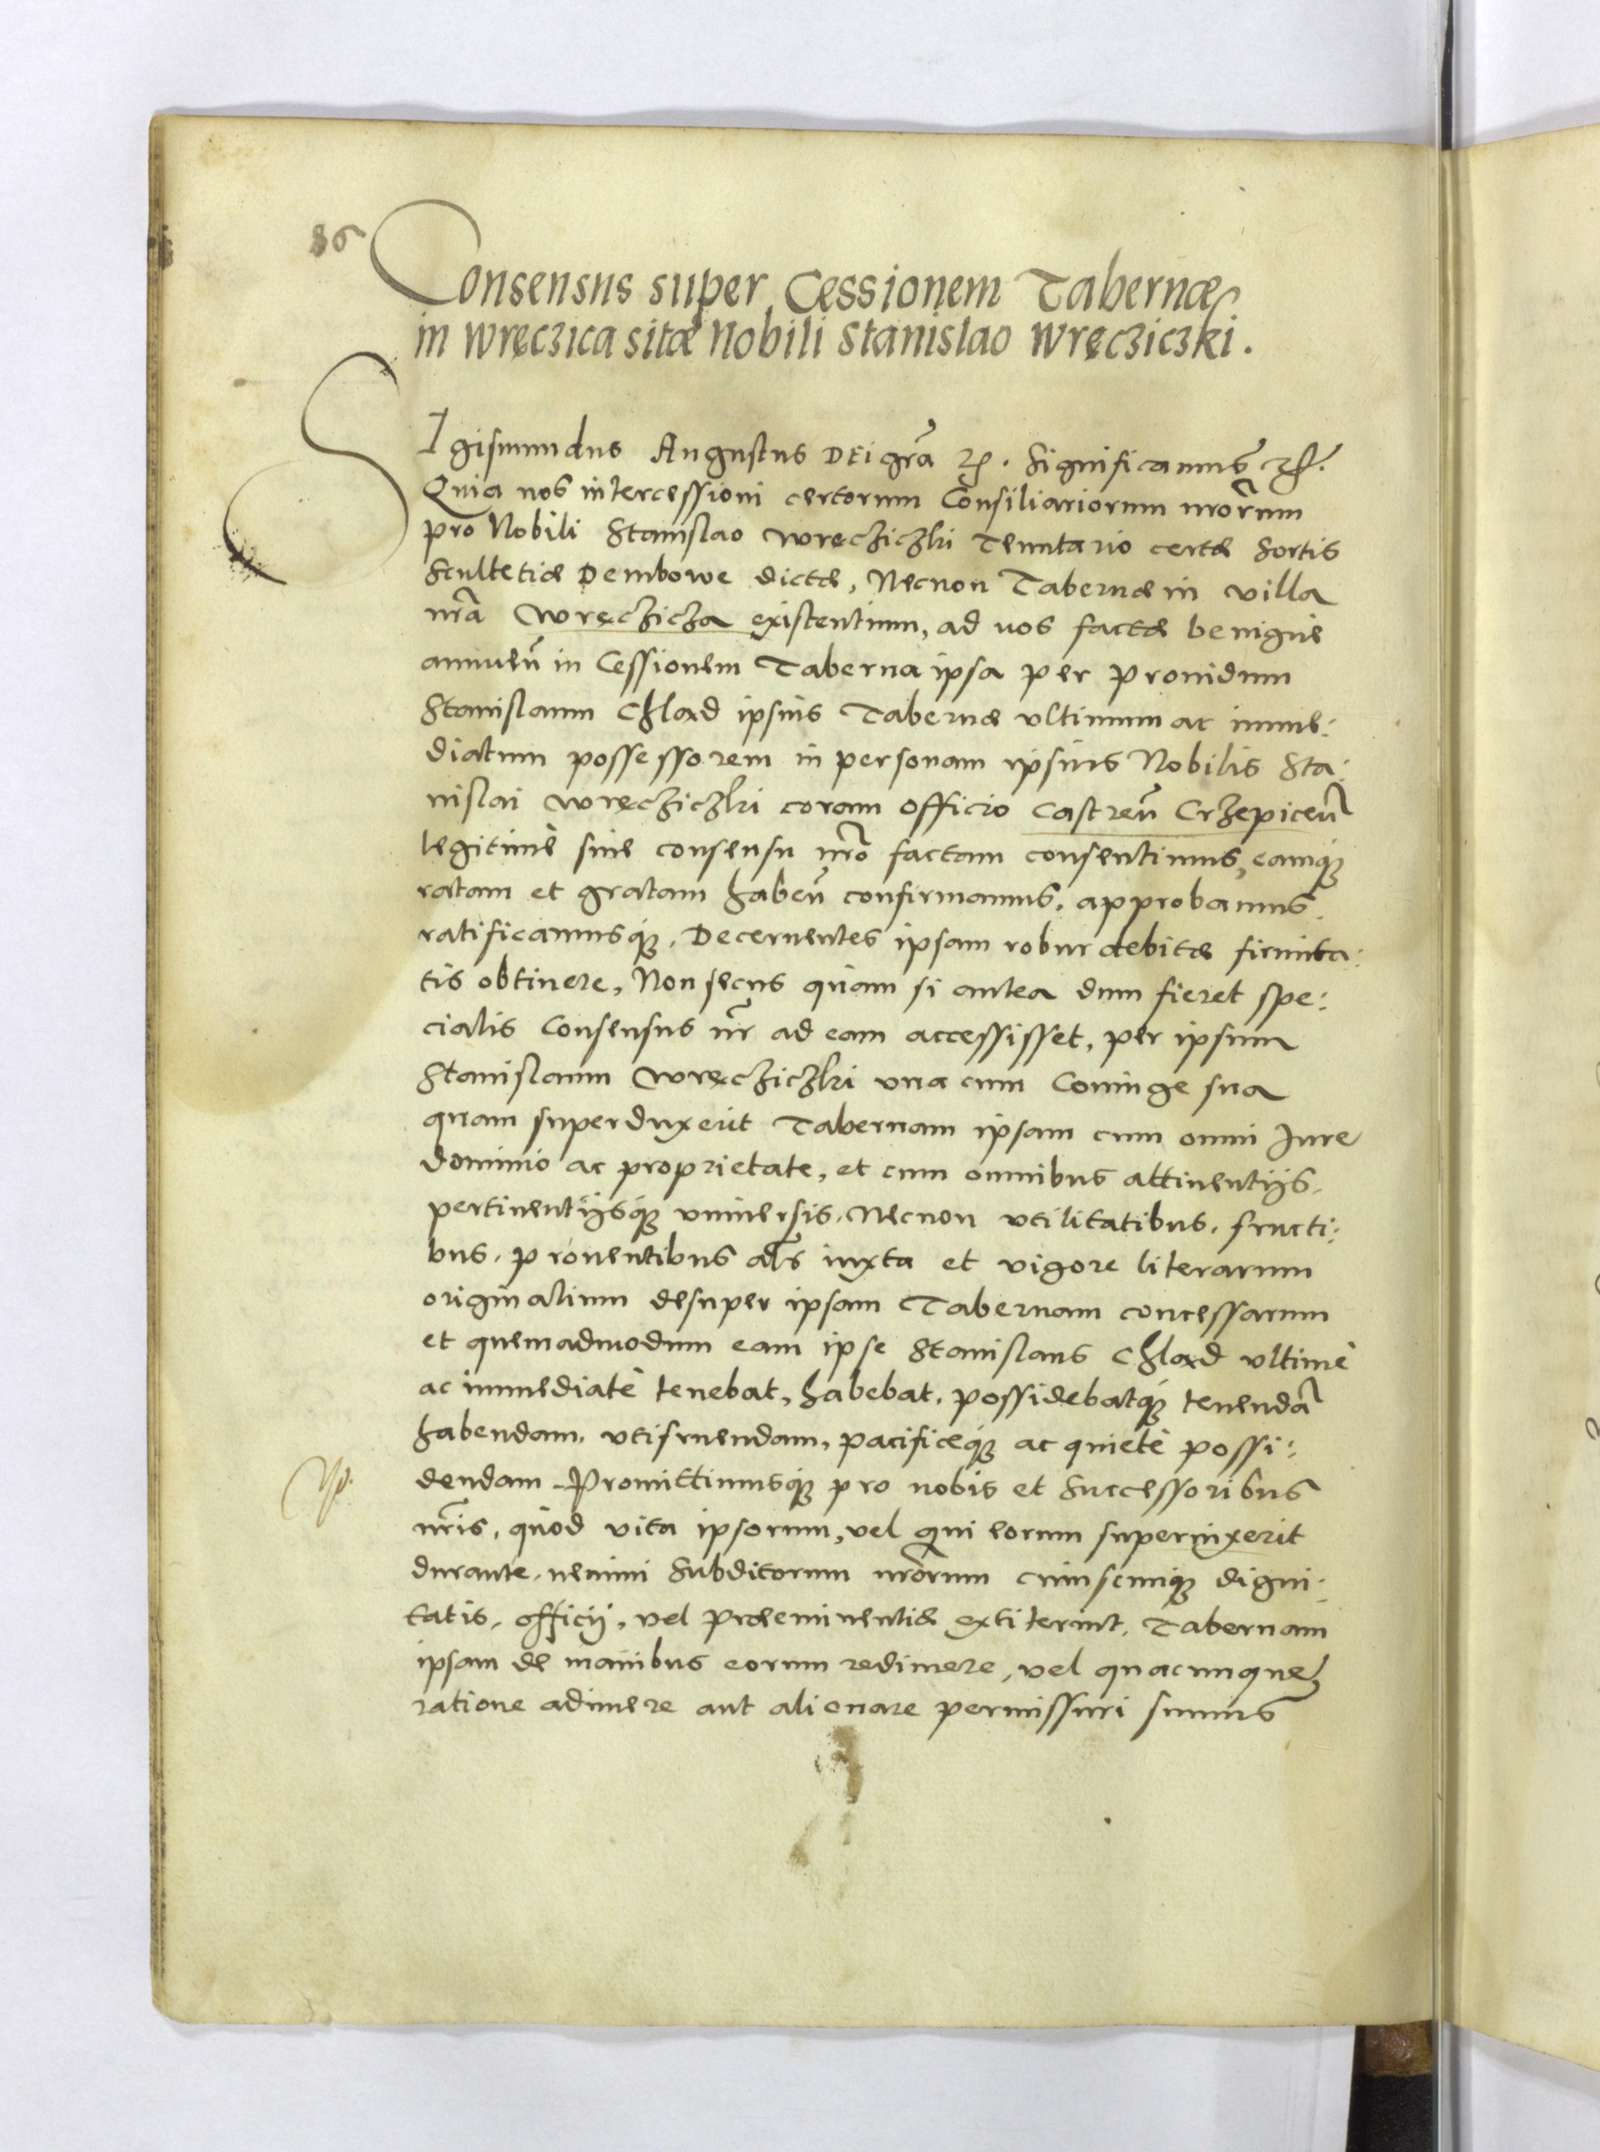 36
Consensus super Cessionem Tabernæ
in Wręczica sitæ Nobili Stanislao Wręcziczki.
SIgismundus Augustus DEI grã ꝛc. Significamus ꝛc.
Quia nos intercessioni certorum Consiliariorum nrõrum
pro Nobili Stanislao Wręcziczki Tenutario certæ Sortis
Scultetiæ Dembowe dictæ, Necnon Tabernæ in villa
nrã Wręczicza existentium, ad nos factæ benigne
annueñ in Cessionem Taberna ipsa per prouidum
Stanislaum Chlad ipsius Tabernæ vltimum ac imme:
diatum possessorem in personam ipsius Nobilis Sta:
nislai Wręcziczki coram officio Castreñ Crzepiceñ
legitimè sine consensu nrõ factam consentimus, eamq;
ratam et gratam habeñ confirmamus, approbamus,
ratificamusq;, Decernentes ipsam robur debitæ firmita:
tis obtinere, Non secus quàm si antea dum fieret spe:
cialis Consensus nr̃ ad eam accessisset, per ipsum
Stanislaum Wręcziczki vna cum Coniuge sua
quam superduxerit Tabernam ipsam cum omni Iure
dominio ac proprietate, et cum omnibus attinentijs,
pertinentijsq; vniuersis, Necnon vtilitatibus, fructi:
bus, prouentibus als iuxta et vigore literarum
originalium desuper ipsam Tabernam concessarum
et quemadmodum eam ipse Stanislaus Chlad vltimè
ac immediatè tenebat, habebat, possidebatq; tenendã
habendam, vtifruendam, pacificeq; ac quietè possi:
dendam. Promittimusq; pro nobis et Successoribus
nris, quòd vita ipsorum, vel qui eorum superuixerit
durante, nemini Subditorum nrõrum cuiuscunq; digni:
tatis, officij, vel præeminentiæ extiterint, Tabernam
ipsam de manibus eorum redimere, vel quacunque
ratione adimere aut alienare permissuri sumus